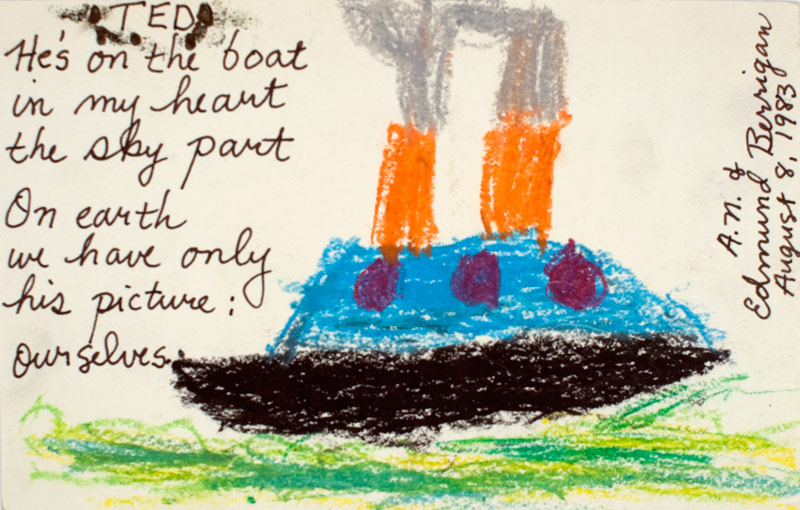 TED
He's on the boat
in my heart
the sky part
On earth
we have only
his picture:
ourselves.
A.N. &
Edmund Berrigan
August 8, 1983